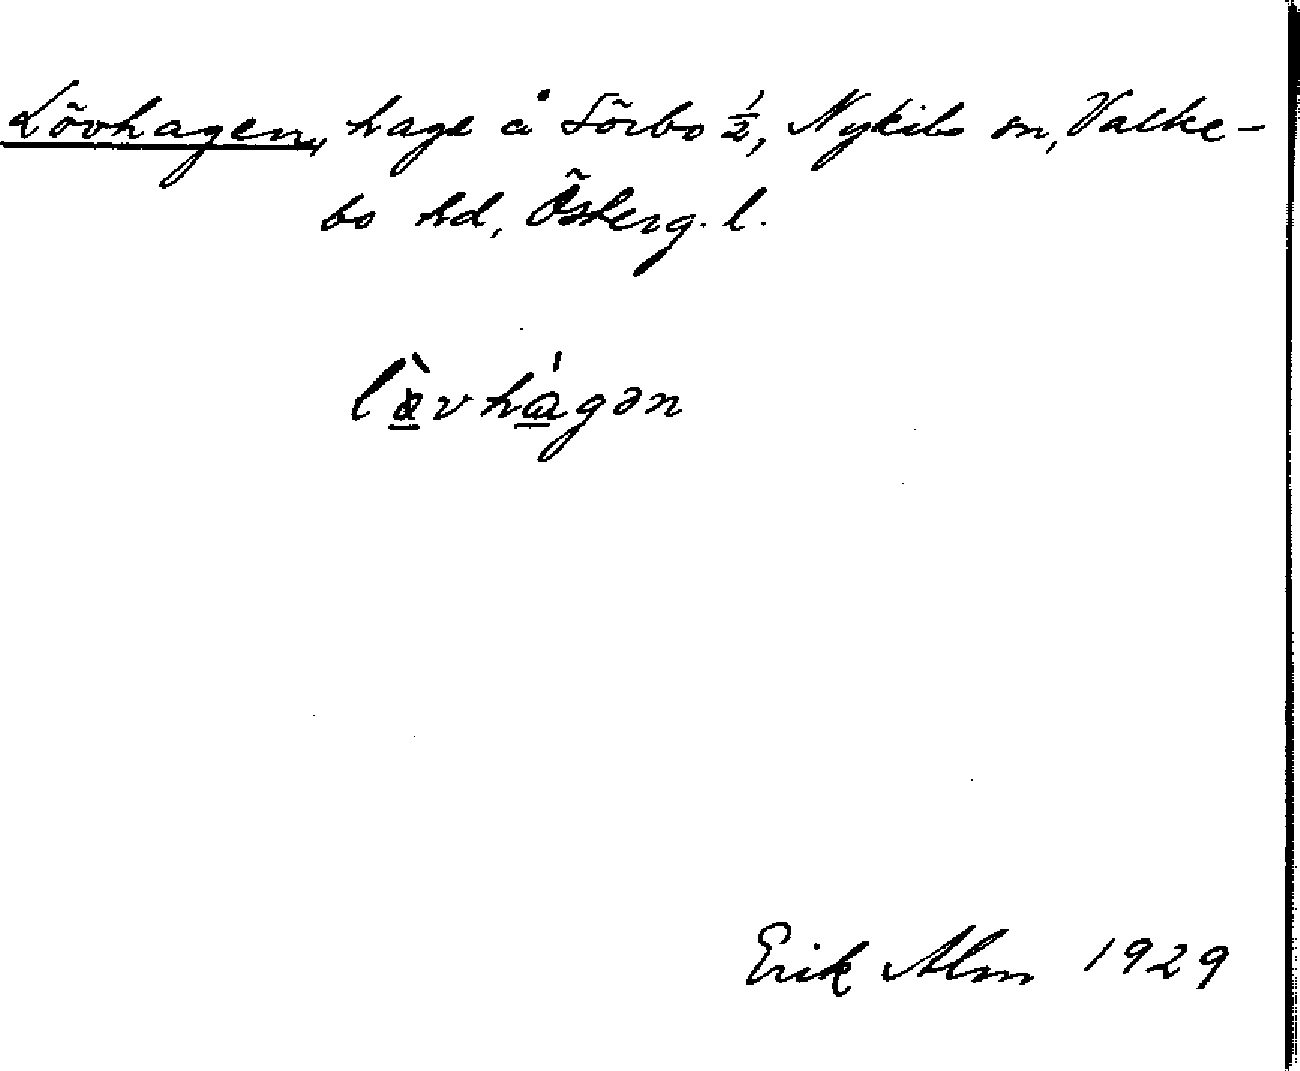 Lövhagen, hage å Sörbo ½, Nykils sn, Valke-
bo hd, Österg. l.
lø̀vhágən
Erik Alm 1929